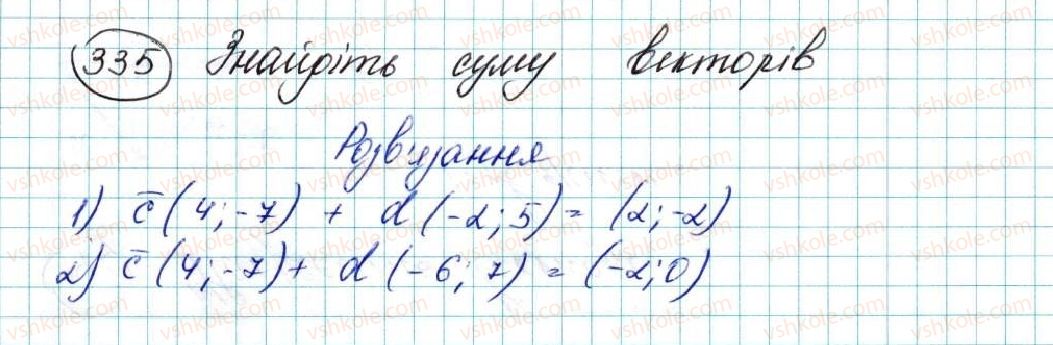 335 Знайдіть суму векторів
Розв'язання
1) c̄ (4; -7) + d (-2; 5) = (2; -2)
2) c̄ (4; -7) + d (-6; 7) = (-2; 0)